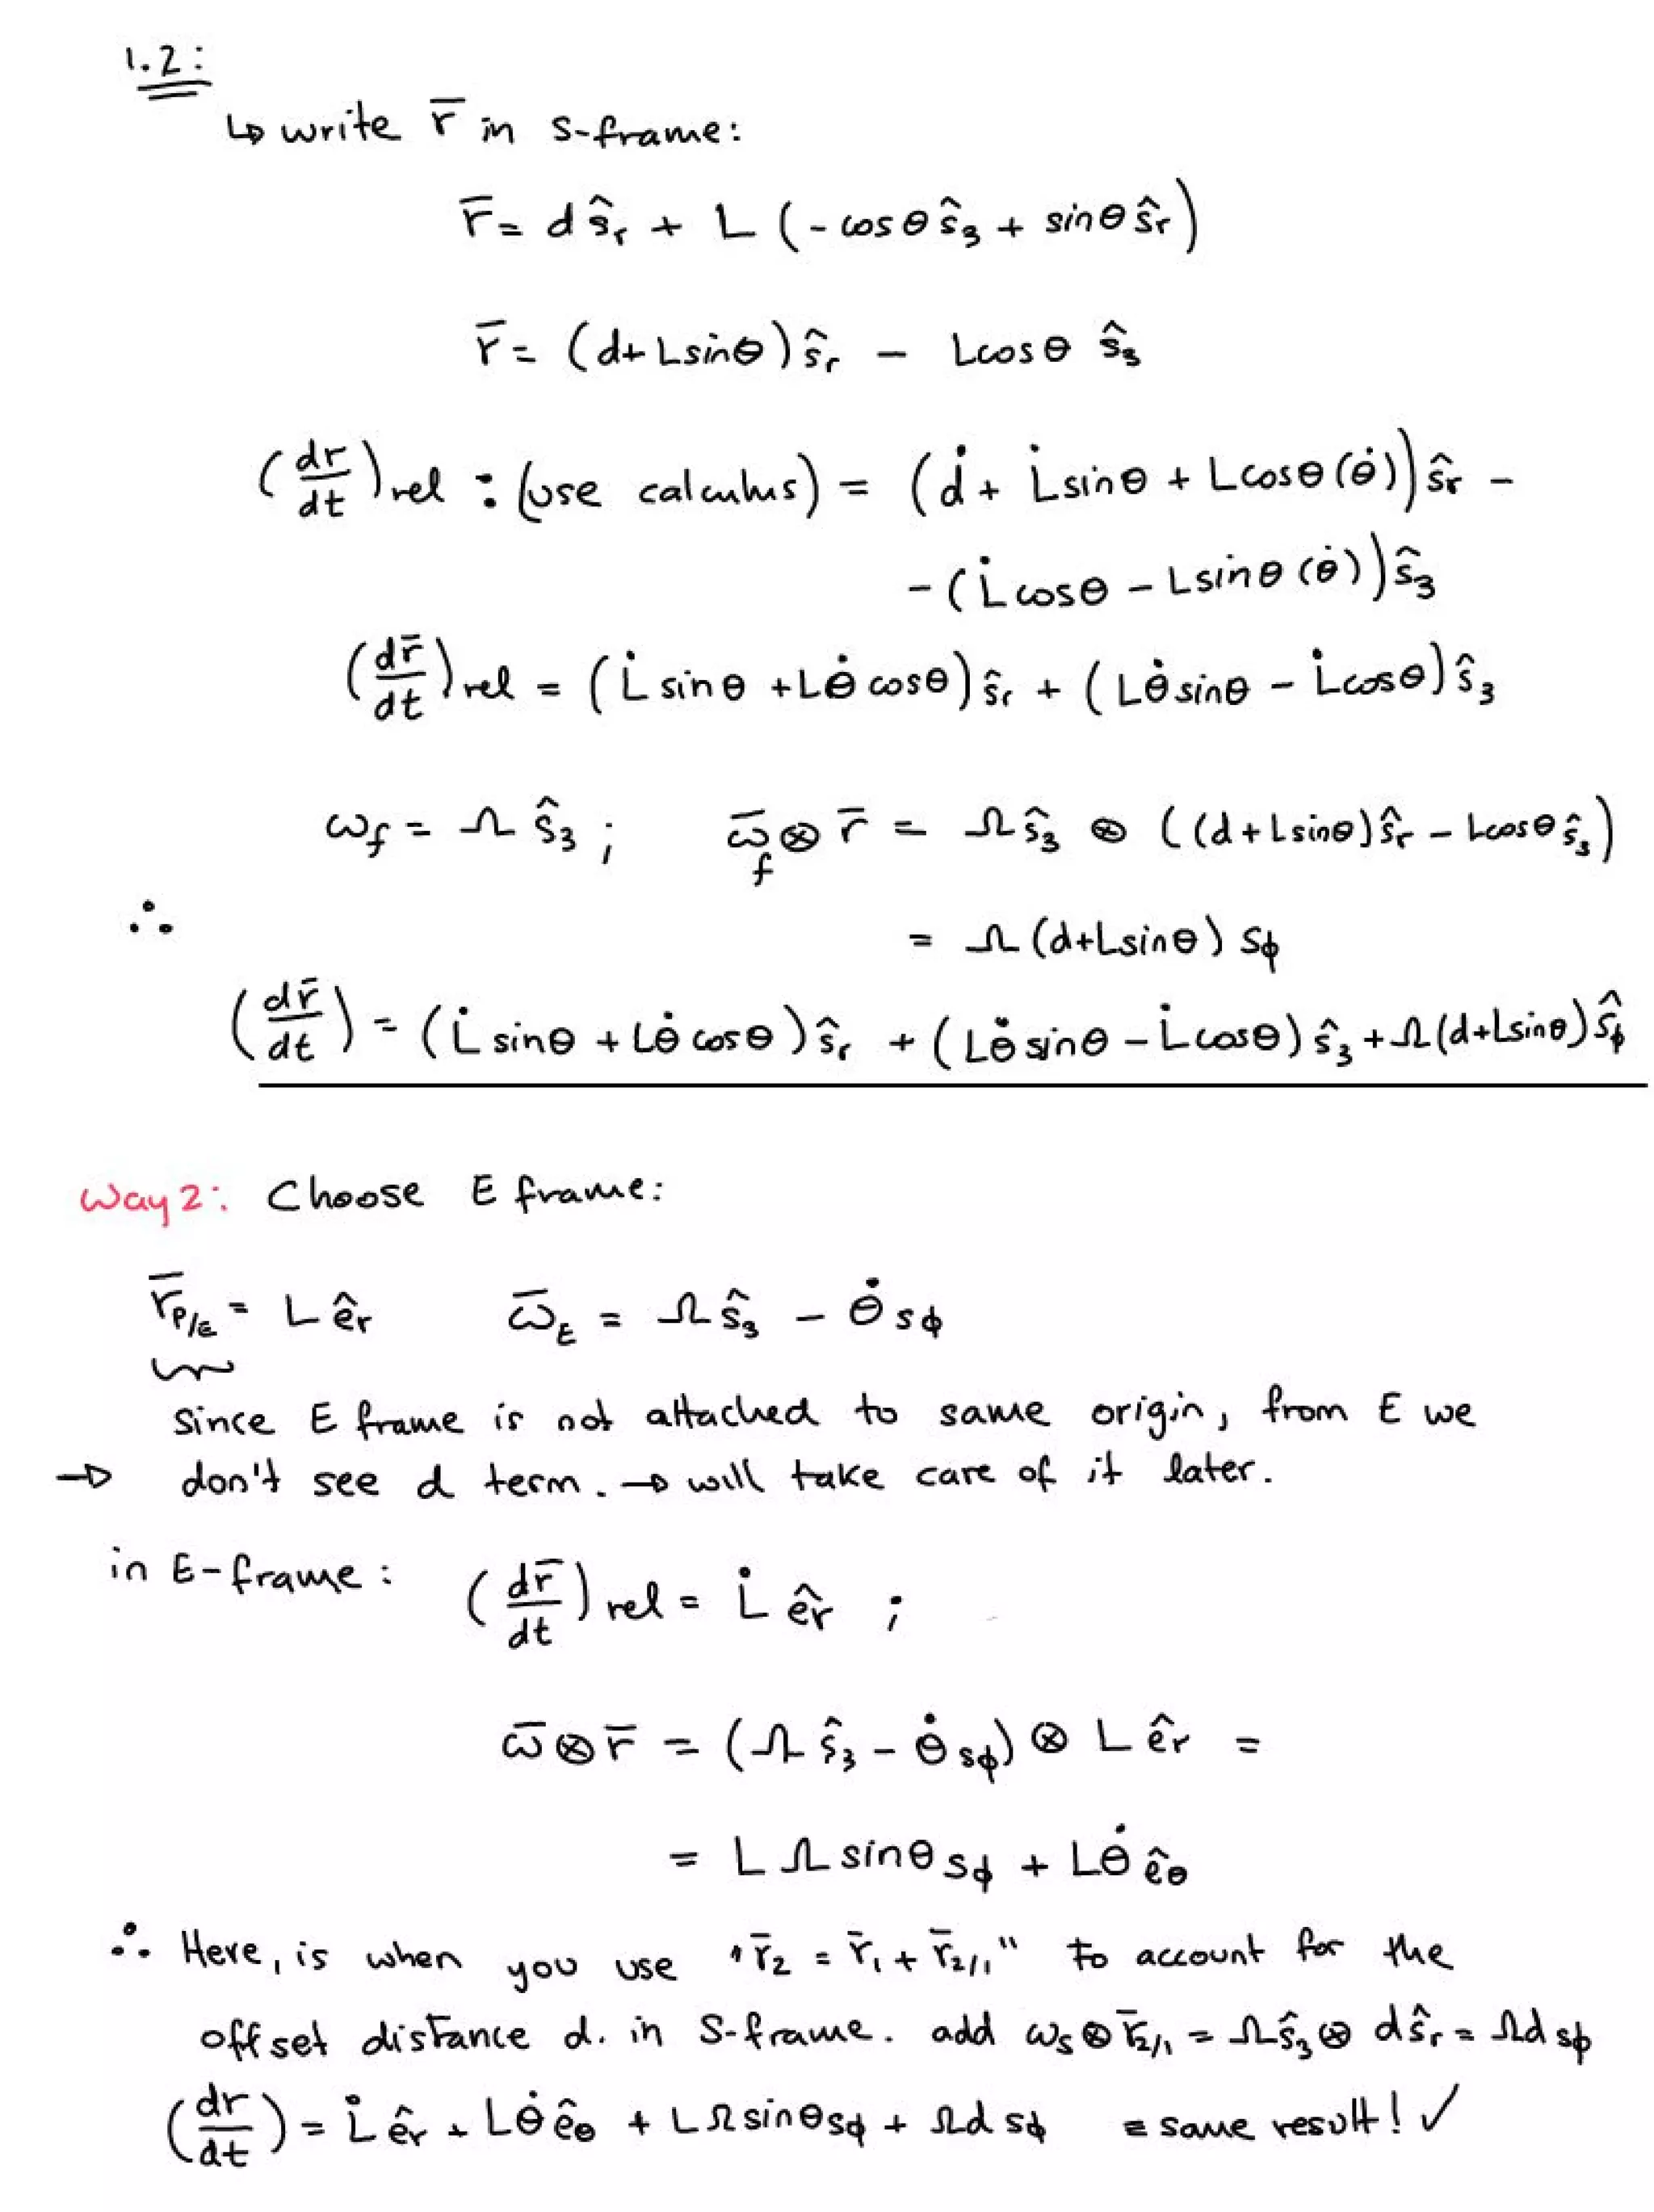 1.2:
↳ write r̄ in s-frame:
r̄ = d ŝr + L (- cosθ ŝ3 + sinθ ŝr)
r̄ = (d + Lsinθ) ŝr - Lcosθ ŝ3
(dr/dt)rel : (use calculus) = (ḋ + L̇sinθ + Lcosθ(θ̇)) ŝr -
- (L̇cosθ - Lsinθ(θ̇)) ŝ3
(dr̄/dt)rel = (L̇ sinθ + Lθ̇ cosθ) ŝr + (Lθ̇ sinθ - L̇cosθ) ŝ3
ωf = Ω ŝ3 ; ω̄f ⊗ r̄ = Ω ŝ3 ⊗ ((d + Lsinθ) ŝr - Lcosθ ŝ3)
∴ = Ω (d+Lsinθ) sϕ
(dr̄/dt) = (L̇ sinθ + Lθ̇ cosθ) ŝr + (Lθ̇ sinθ - L̇cosθ) ŝ3 + Ω(d+Lsinθ) ŝϕ
Way 2: Choose E frame:
r̄P/E = L êr ω̄E = Ω ŝ3 - θ̇ sϕ
since E frame is not attached to same origin, from E we
→ don't see d term. → will take care of it later.
in E-frame: (dr̄/dt)rel = L̇ êr ;
ω̄ ⊗ r̄ = (Ω ŝ3 - θ̇ sϕ) ⊗ L êr =
= L Ω sinθ sϕ + Lθ̇ êθ
∴ Here, is when you use "r̄2 = r̄1 + r̄2/1" to account for the
offset distance d. in S-frame. add ωs ⊗ r̄2/1 = Ω ŝ3 ⊗ d ŝr = Ωd sϕ
(dr/dt) = L̇ êr + Lθ̇ êθ + LΩ sinθ sϕ + Ωd sϕ ≡ same result! ✓